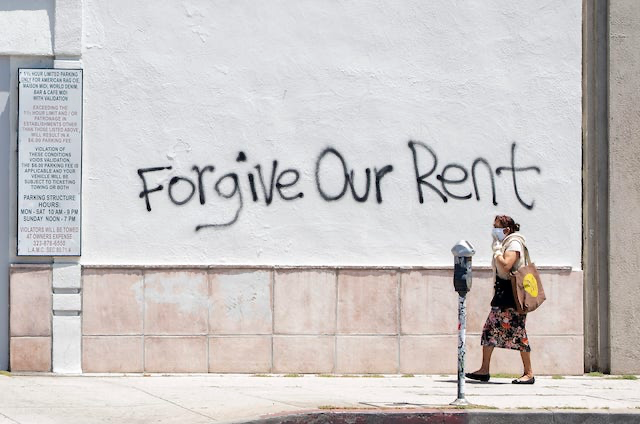 1½ HOUR LIMITED PARKING
ONLY FOR AMERICAN RAG CIE,
MAISON MIDI, WORLD DENIM,
BAR & CAFE MIDI
WITH VALIDATION
EXCEEDING THE
1½ HOUR LIMIT AND / OR
PATRONAGE IN
ESTABLISHMENTS OTHER
THAN THOSE LISTED ABOVE,
WILL RESULT IN A
$6.00 PARKING FEE
VIOLATION OF
THESE CONDITIONS
VOIDS VALIDATION.
THE $6.00 PARKING FEE IS
APPLICABLE AND YOUR
VEHICLE WILL BE
SUBJECT TO TICKETING
TOWING OR BOTH
PARKING STRUCTURE
HOURS:
MON - SAT 10 AM - 9 PM
SUNDAY NOON - 7 PM
VIOLATORS WILL BE TOWED
AT OWNERS EXPENSE
L.A.M.C. SEC
Forgive Our Rent